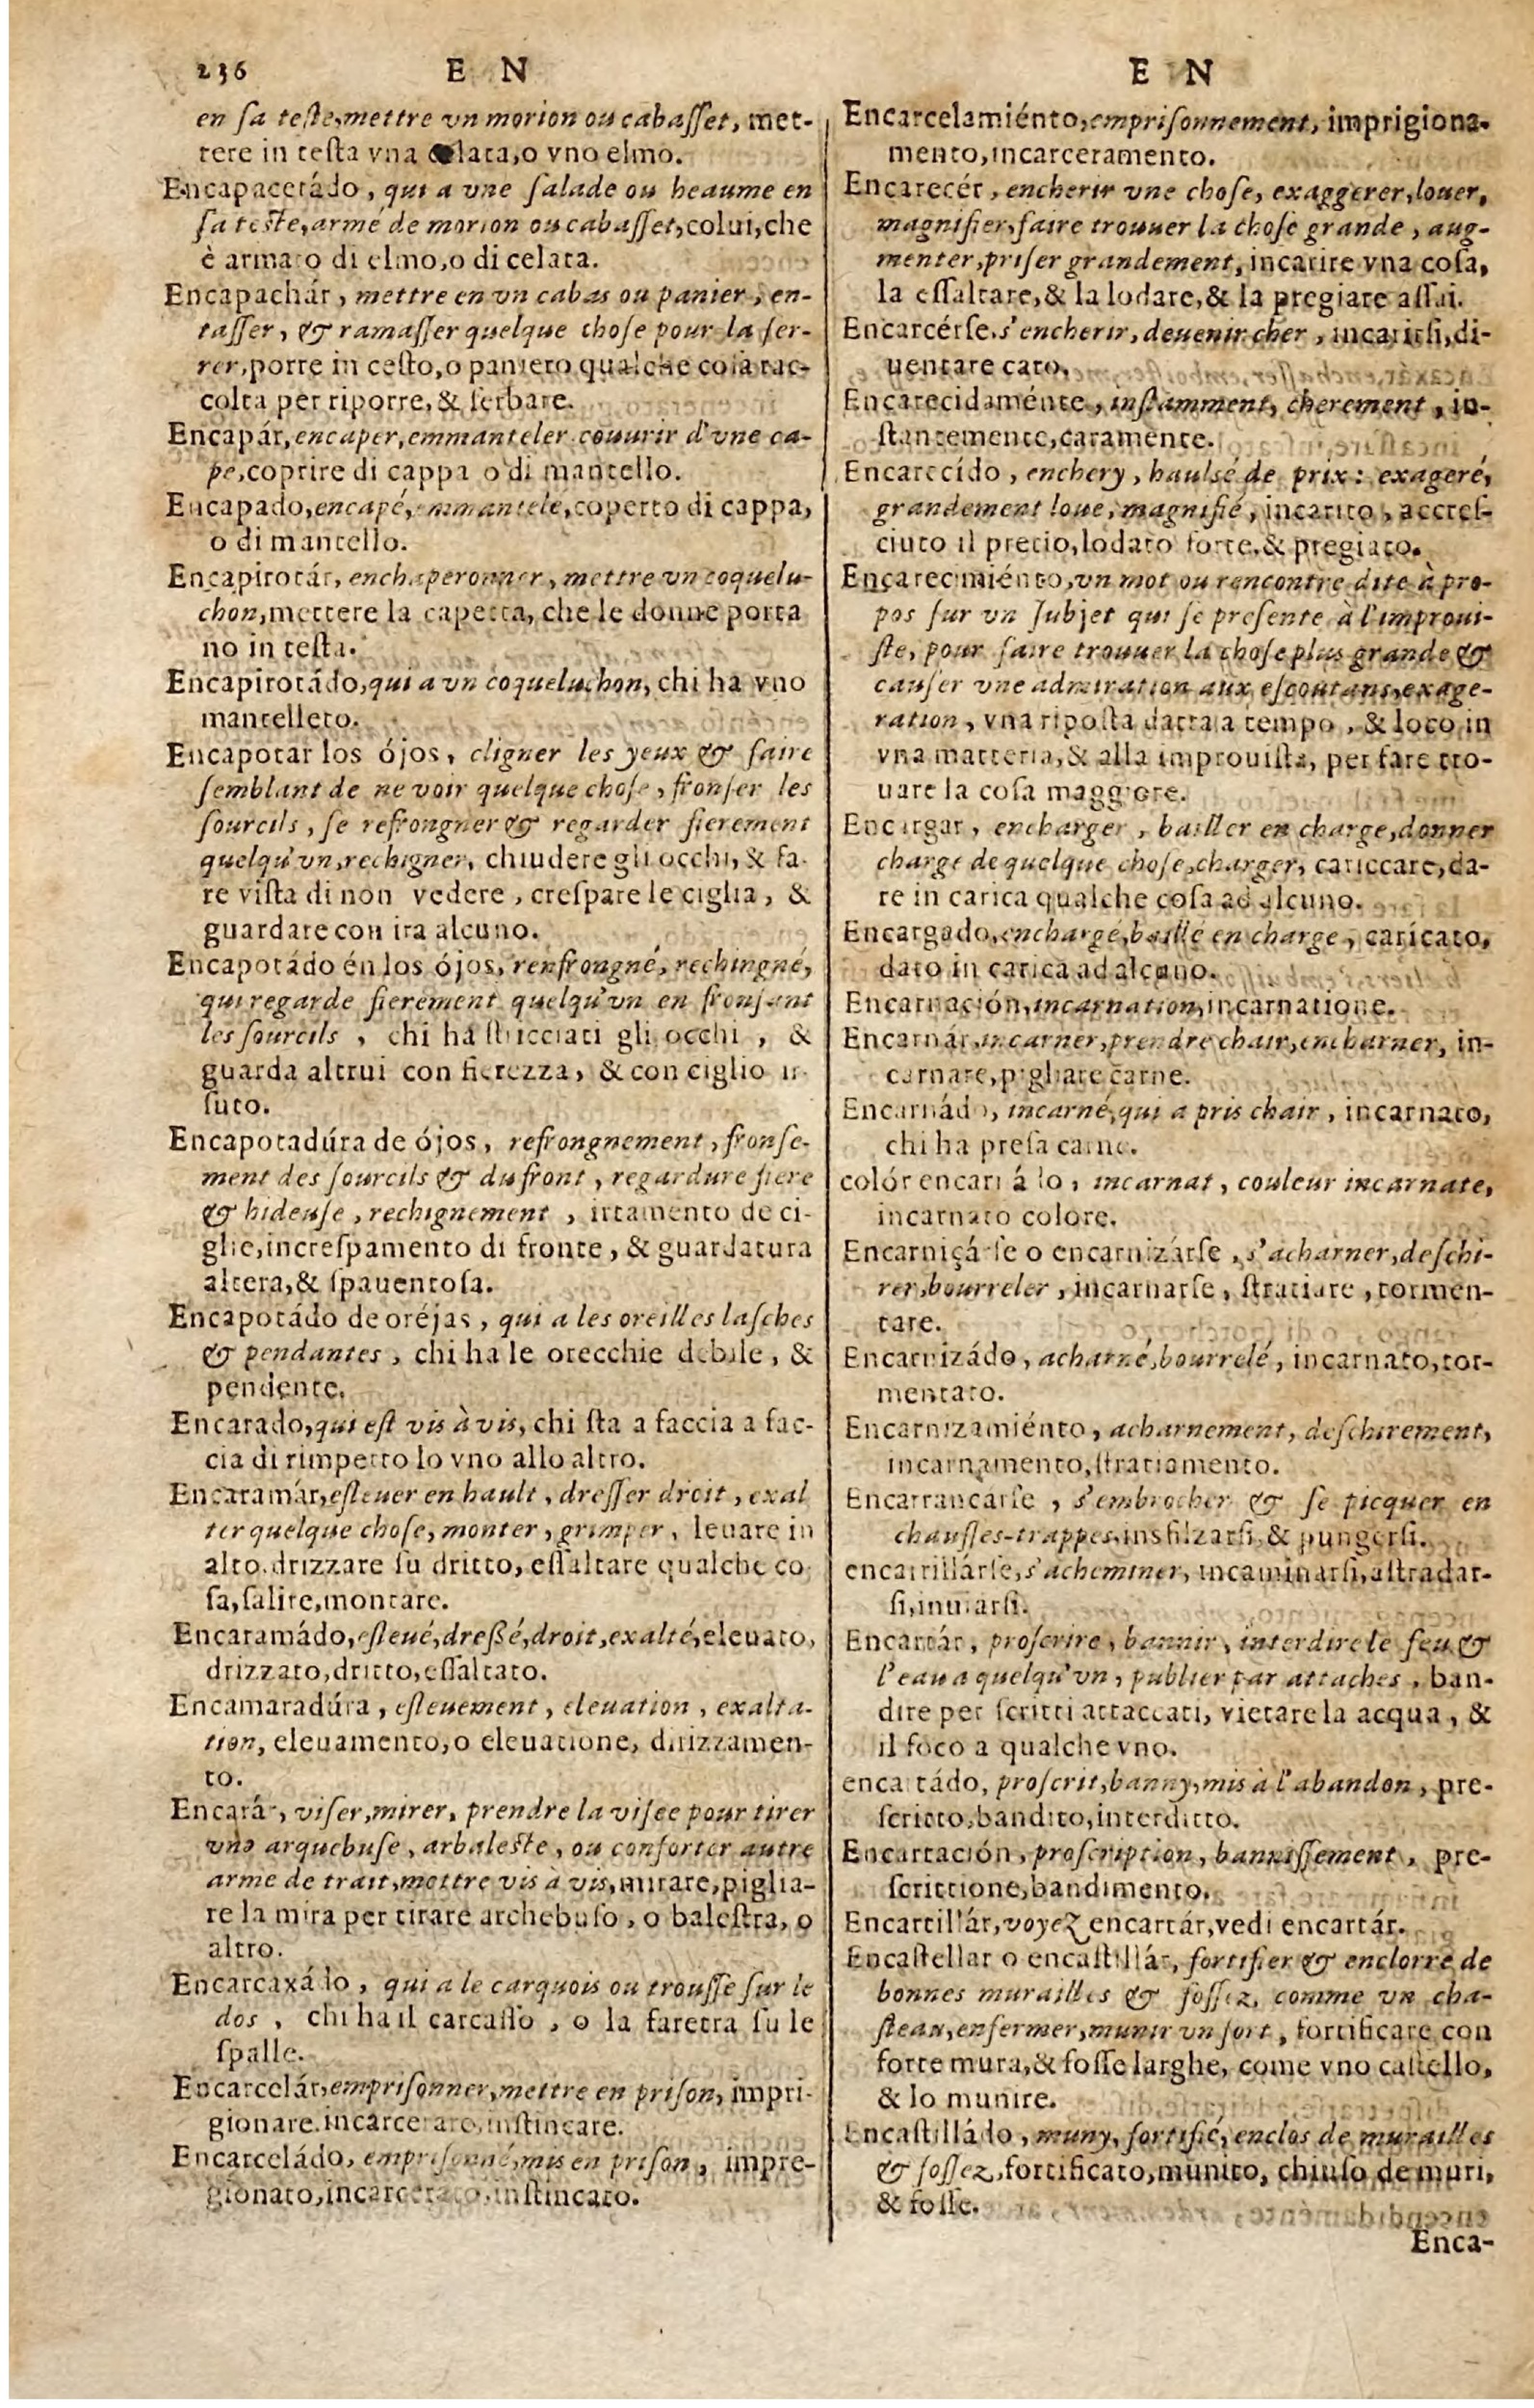 236 E N
en sa teste, mettre vn morion ou cabasset, met-
tere in testa vna celata, o vno elmo.
Encapacetádo, qui a vne salade ou heaume en
sa teste, armé de morion ou cabasset, colui, che
è armato di elmo, o di celata.
Encapachár, mettre en vn cabas ou panier, en-
tasser, & ramasser quelque chose pour la ser-
rer, porre in cesto, o paniero qualche cosa rac-
colta per riporre, & serbare.
Encapár, encaper, emmanteler couurir d'vne ca-
pe, coprire di cappa o di mantello.
Encapado, encapé, emmantelé, coperto di cappa,
o di mantello.
Encapirotár, enchaperonner, mettre vn coquelu-
chon, mettere la capetta, che le donne porta
no in testa.
Encapirotádo, qui a vn coqueluchon, chi ha vno
mantelleto.
Encapotar los ójos, cligner les yeux & faire
semblant de ne voir quelque chose, fronser les
sourcils, se refrongner & regarder fierement
quelqu'vn, rechigner, chiudere gli occhi, & fa-
re vista di non vedere, crespare le ciglia, &
guardare con ira alcuno.
Encapotádo én los ójos, renfrongné, rechingné,
qui regarde fierement quelqu'vn en fronsant
les sourcils, chi ha stucciati gli occhi, &
guarda altrui con fierezza, & con ciglio ir-
suto.
Encapotadúra de ójos, refrongnement, fronse-
ment des sourcils & du front, regardure fiere
& hideuse, rechignement, irtamento de ci-
glie, increspamento di fronte, & guardatura
altera, & spauentosa.
Encapotádo de oréjas, qui a les oreilles lasches
& pendantes, chi ha le orecchie debile, &
pendente.
Encarado, qui est vis à vis, chi sta a faccia a fac-
cia di rimpetto lo vno allo altro.
Encaramár, esleuer en hault, dresser droit, exal
ter quelque chose, monter, grimper, leuare in
alto. drizzare su dritto, essaltare qualche co
sa, salire, montare.
Encaramádo, esleué, dressé, droit, exalté, eleuato,
drizzato, dritto, essaltato.
Encamaradúra, esleuement, eleuation, exalta-
tion, eleuamento, o eleuatione, drizzamen-
to.
Encarár, viser, mirer, prendre la visee pour tirer
vne arquebuse, arbaleste, ou conforter autre
arme de trait, mettre vis à vis, mirare, piglia-
re la mira per tirare archebuso, o balestra, o
altro.
Encarcaxádo, qui a le carquois ou trousse sur le
dos, chi ha il carcasso, o la faretra su le
spalle.
Encarcelár, emprisonner, mettre en prison, impri-
gionare. incarcerare, instincare.
Encarceládo, emprisonné, mis en prison, impre-
gionato, incarcerato, instincato.
E N
Encarcelamiénto, emprisonnement, imprigiona-
mento, incarceramento.
Encarecér, encherir vne chose, exaggerer, louer,
magnifier, faire trouuer la chose grande, aug-
menter, priser grandement, incarire vna cosa,
la essaltare, & la lodare, & la pregiare assai.
Encarcérse, s'encherir, deuenir cher, incarirsi, di-
uentare caro.
Encarecidaménte, instamment, cherement, in-
stantemente, caramente.
Encarecído, enchery, haulsé de prix: exageré,
grandement loué, magnifié, incarito, accres-
ciuto il precio, lodato forte, & pregiato.
Encarecimiénto, vn mot ou rencontre dite à pro-
pos sur vn subjet qui se presente à l'improui-
ste, pour faire trouuer la chose plus grande &
causer vne admiration aux escoutans, exage-
ration, vna riposta datta a tempo, & loco in
vna matteria, & alla improuista, per fare tro-
uare la cosa maggiore.
Encargar, encharger, bailler en charge, donner
charge de quelque chose, charger, cariccare, da-
re in carica qualche cosa ad alcuno.
Encargado, enchargé, baillé en charge, caricato,
dato in carica ad alcuno.
Encarnación, incarnation, incarnatione.
Encarnár, incarner, prendre chair, encharner, in-
carnare, pigliare carne.
Encarnádo, incarné, qui a pris chair, incarnato,
chi ha presa carne.
colór encarnádo, incarnat, couleur incarnate,
incarnato colore.
Encarniçárse o encarnizárse, s'acharner, deschi-
rer, bourreler, incarnarse, stratiare, tormen-
tare.
Encarnizádo, acharné, bourrelé, incarnato, tor-
mentato.
Encarnizamiénto, acharnement, deschirement,
incarnamento, stratiamento.
Encarrancarse, s'embrocher & se picquer en
chausses-trappes, insfilzarsi, & pungersi.
encarrillárse, s'acheminer, incaminarsi, astradar-
si, inuiarsi.
Encartár, proscrire, bannir, interdire le feu &
l'eau a quelqu'vn, publier par attaches, ban-
dire per scritti attaccati, vietare la acqua, &
il foco a qualche vno.
encartádo, proscrit, banny, mis à l'abandon, pre-
scritto, bandito, interditto.
Encartación, proscription, bannissement, pre-
scrittione, bandimento.
Encartillár, voyez encartár, vedi encartár.
Encastellar o encastillár, fortifier & enclorre de
bonnes murailles & fossez, comme vn cha-
steau, enfermer, munir vn fort, fortificare con
forte mura, & fosse larghe, come vno castello,
& lo munire.
Encastilládo, muny, fortifié, enclos de murailles
& fossez, fortificato, munito, chiuso de muri,
& fosse.
Enca-